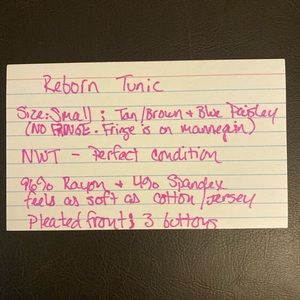 Reborn Tunic
Size: Small ; Tan/Brown + Blue Paisley
(NO FRINGE. Fringe is on mannequin)
NWT - Perfect condition
96% Rayon + 4% Spandex
feels as soft as cotton/jersey
Pleated front ; 3 buttons